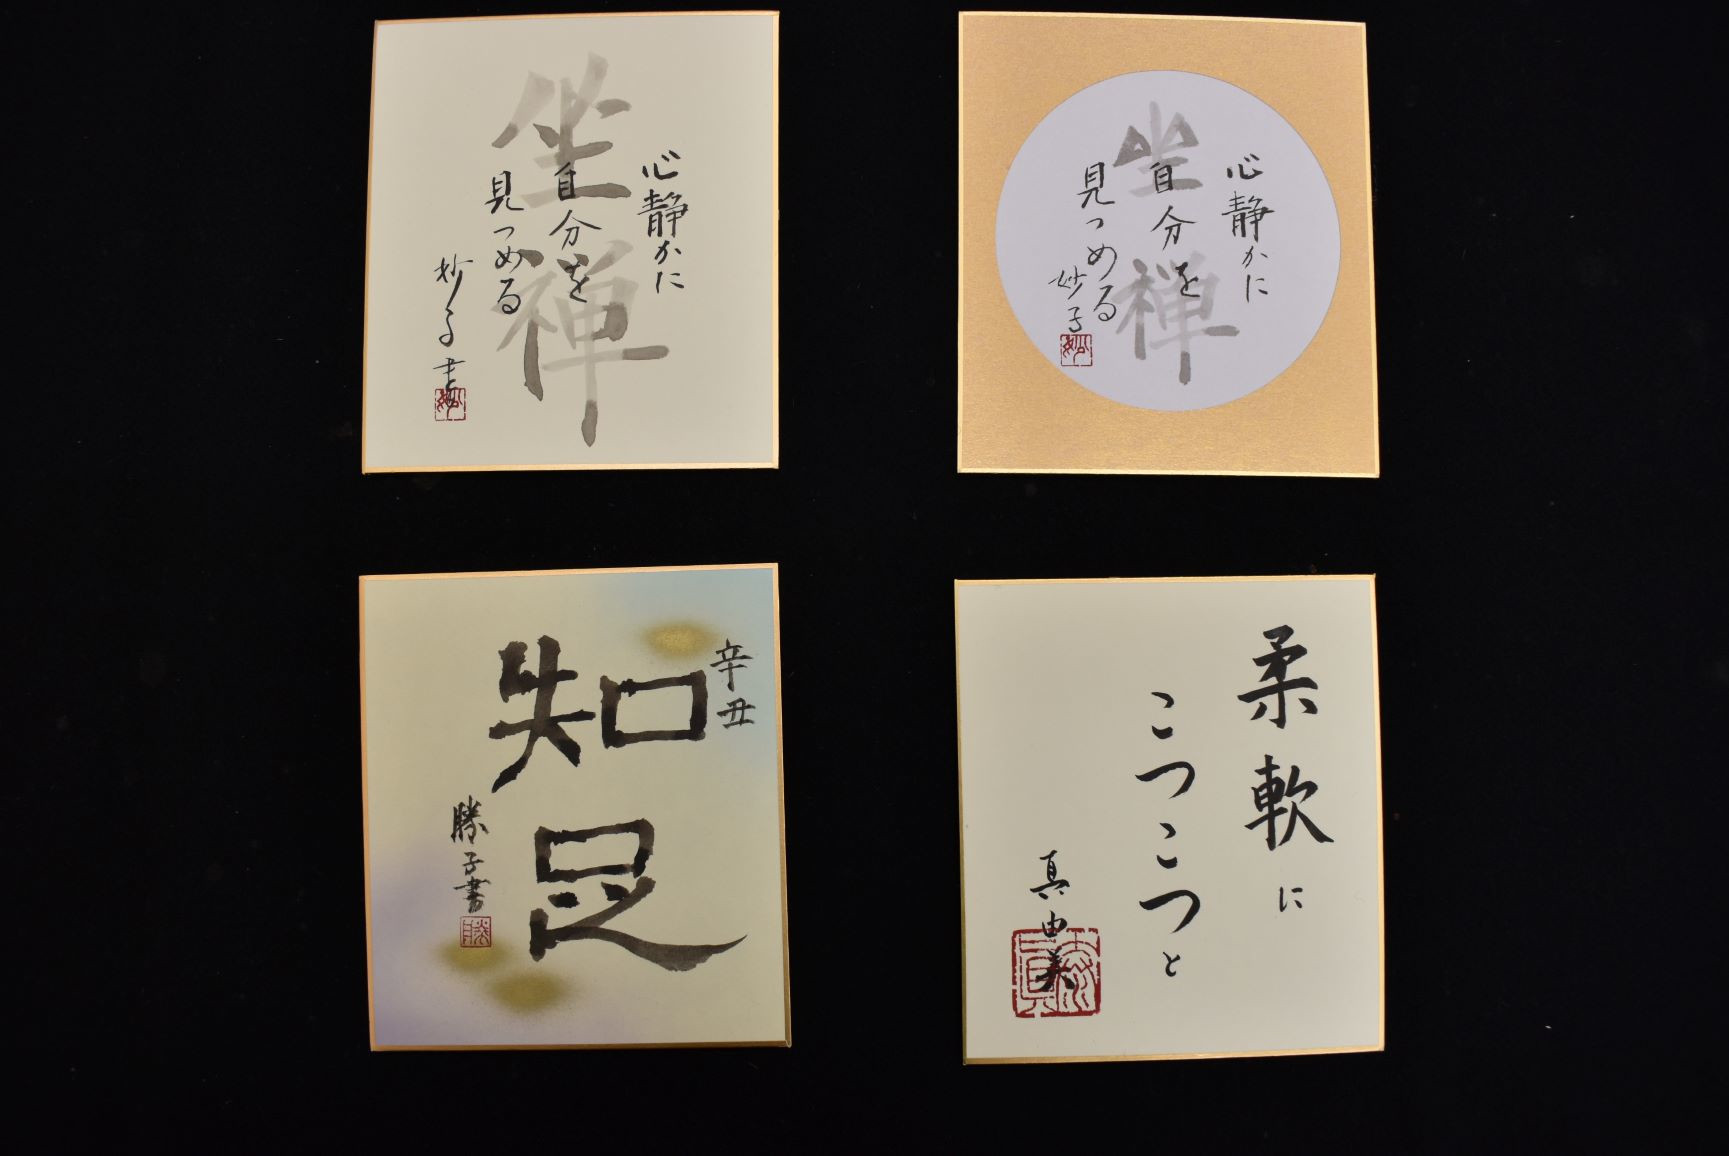 坐禅
心静かに
自分を
見つめる
妙子書
坐禅
心静かに
自分を
見つめる
妙子
辛丑
知足
勝子書
柔軟に
こつこつと
真由美